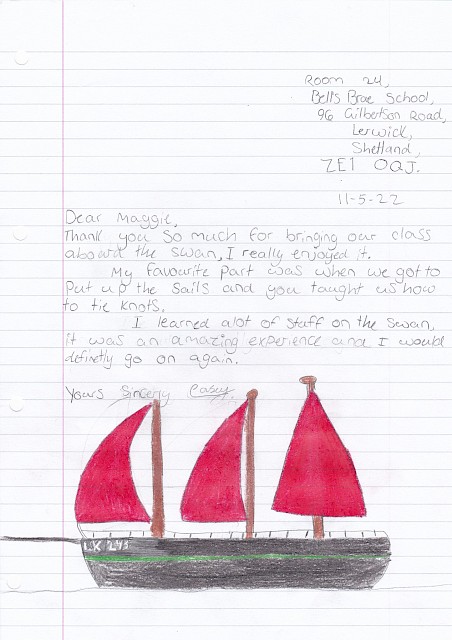 Room 24,
Bell's Brae School,
96 Gilbertson Road,
Lerwick,
Shetland,
ZE1 0QJ.
11-5-22
Dear Maggie,
Thank you so much for bringing our class
aboard the swan, I really enjoyed it.
My favourite part was when we got to
Put up the sails and you taught us how
to tie knots.
I learned alot of staff on the swan,
it was an amazing experience and I would
definetly go on again.
Yours Sincerly Casey.
LK 243